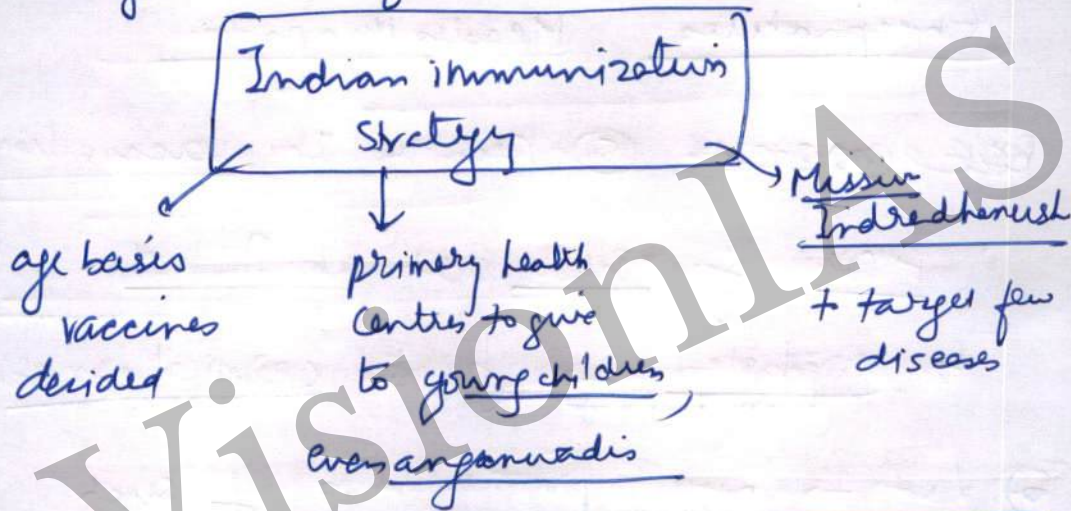 Indian immunization
Strategy
age basis
vaccines
decided
primary health
centres to give
to young children,
even anganwadis
Mission
Indredhanush
to target few
diseases
VisionIAS